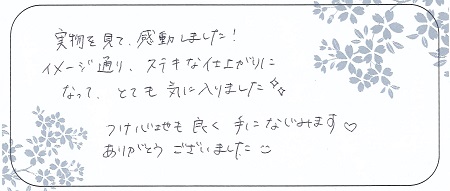 実物を見て、感動しました!
イメージ通り、ステキな仕上がりに
なって、とても気に入りました✨
つけ心地も良く手になじみます♡
ありがとうございました☺